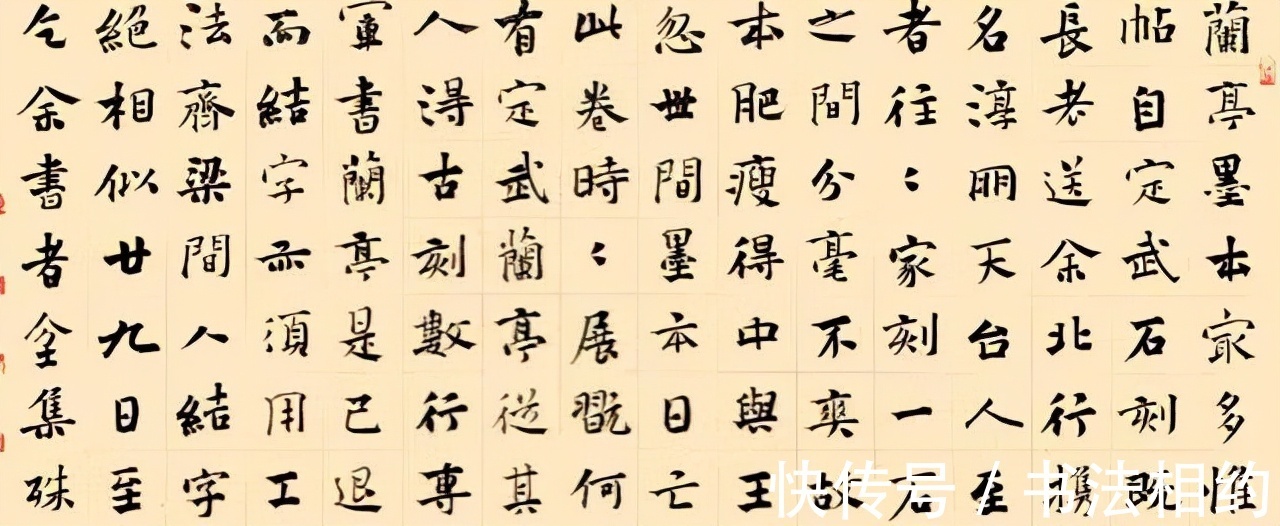 蘭亭墨本冣多惟
帖自定武石刻既
長老送余北行携
名淳朋天台人
者往:家刻一石
之間分毫不爽故
本肥瘦得中與王
忽世間墨本日亡
此卷時:展翫何
有定武蘭亭從其
人得古刻數行專
軍書蘭亭是已退
而結字亦須用工
法齊梁間人結字
絕相似廿九日至
乞余書者坌集殊
快传号 / 书法相约